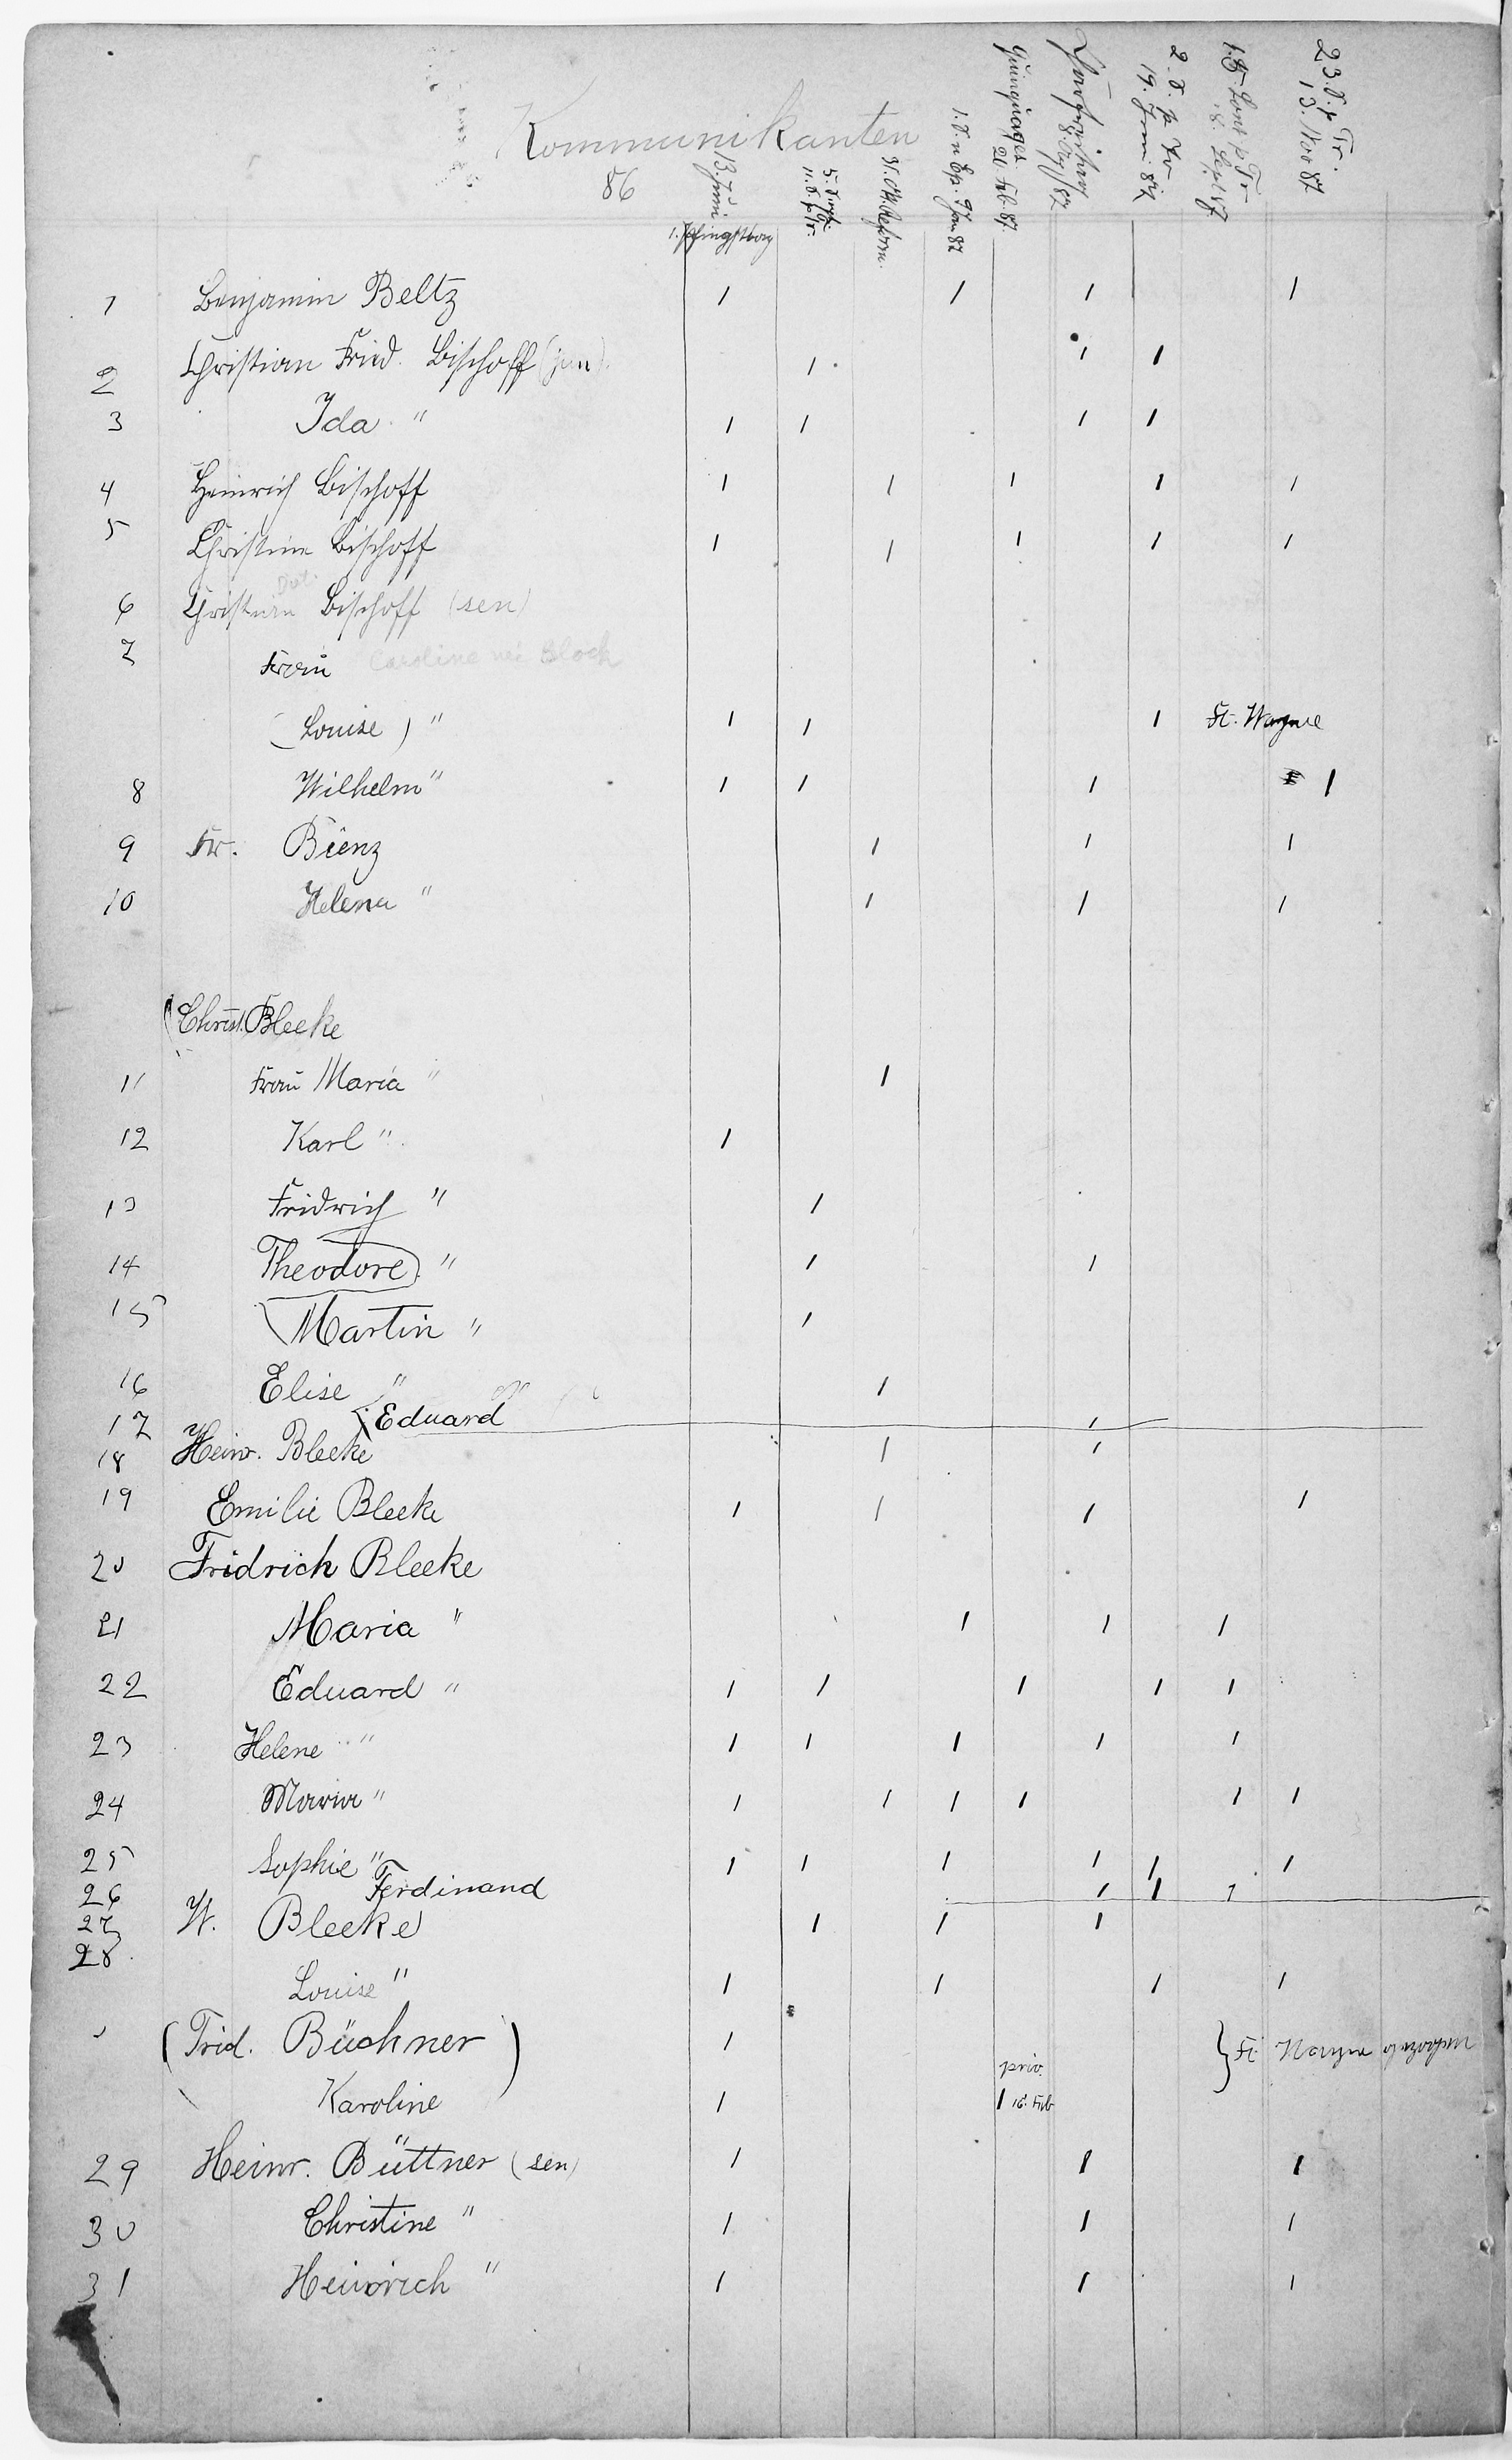 Kommunikanten
86
13. Juni
1. Pfingsttag
5. Sept.
11. S. p. Tr.
31. Okt. Reform.
1. S. n. Ep. 9 Jan 87
Quinquages.
20 Feb. 87.
87
2. S. p. Tr
19. Juni 87
Sont. p. Tr
Sept 87
23. S. p. Tr.
13. Nov 87
1 Benjamin Beltz 1 1 1 1
2 Christian Fried. Bischoff (jun). 1 1 1
3 Ida " 1 1 1 1
4 Heinrich Bischoff 1 1 1 1 1
5 Christine Bischoff 1 1 1 1 1
6 Christian Bischoff (sen)
7 Frau Caroline neé Block
(Louise) " 1 1 1 Ft. Wayne
8 Wilhelm " 1 1 1 1
9 Fr. Bienz 1 1 1
10 Helena " 1 1 1
(Christ. Bleeke
11 Frau Maria " 1
12 Karl " 1
13 Fridrich " 1
14 Theodore) " 1 1
15 Martin " 1
16 Elise " 1
17 (Eduard 1
18 Heinr. Bleeke 1 1
19 Emilie Bleeke 1 1 1 1
20 Fridrich Bleeke
21 Maria " 1 1 1
22 Eduard " 1 1 1 1 1
23 Helene " 1 1 1 1 1
24 Maria " 1 1 1 1 1 1
25 Sophie " 1 1 1 1 1 1
26 Ferdinand 1 1 1
27 W. Bleeke 1 1 1
28
Louise " 1 1 1 1
(Frid. Büchner) 1 } Ft Wayne gezogen
priv.
Karoline 1 1 16. Feb
29 Heinr. Büttner (sen) 1 1 1
30 Christine " 1 1 1
31 Heinrich " 1 1 1